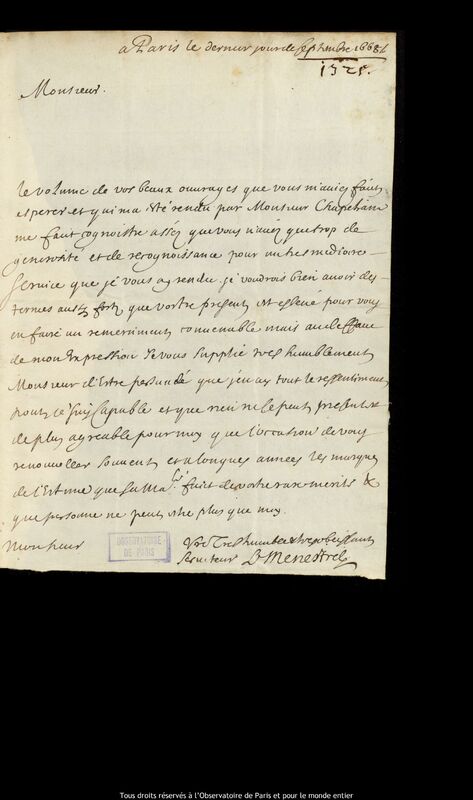 a Paris le dernier jour de Septembre 1668
1325.
Monsieur.
le volume de vos beaux ouvrages que vous m'aviez fait
esperer et qui m'a esté rendu par Monsieur Chapelain
me fait cognoistre assez que vous n'avez que trop de
generosité et de recognoissance pour un tres mediocre
service que je vous ay rendu. je voudrois bien avoir des
termes aussy forts que vostre present est pour vous
en faire un remerciment convenable mais au deffaut
de mon expression Je vous supplie tres humblement
Monsieur d'Estre persuadé que j'en ay tout le ressentiment
dont je suis capable et que rien ne se peut presenter
de plus agreable pour moy que l'occasion de vous
renouveller souvent et a longues années les marques
de l'Estime que sa Ma.té fait de vostre rare merite &
que personne ne peut estre plus que moy
Monsieur
OBSERVATOIRE
DE PARIS
Vre Tres humble et tres obeissant
serviteur Le Menestrel
Tous droits réservés à l'Observatoire de Paris et pour le monde entier